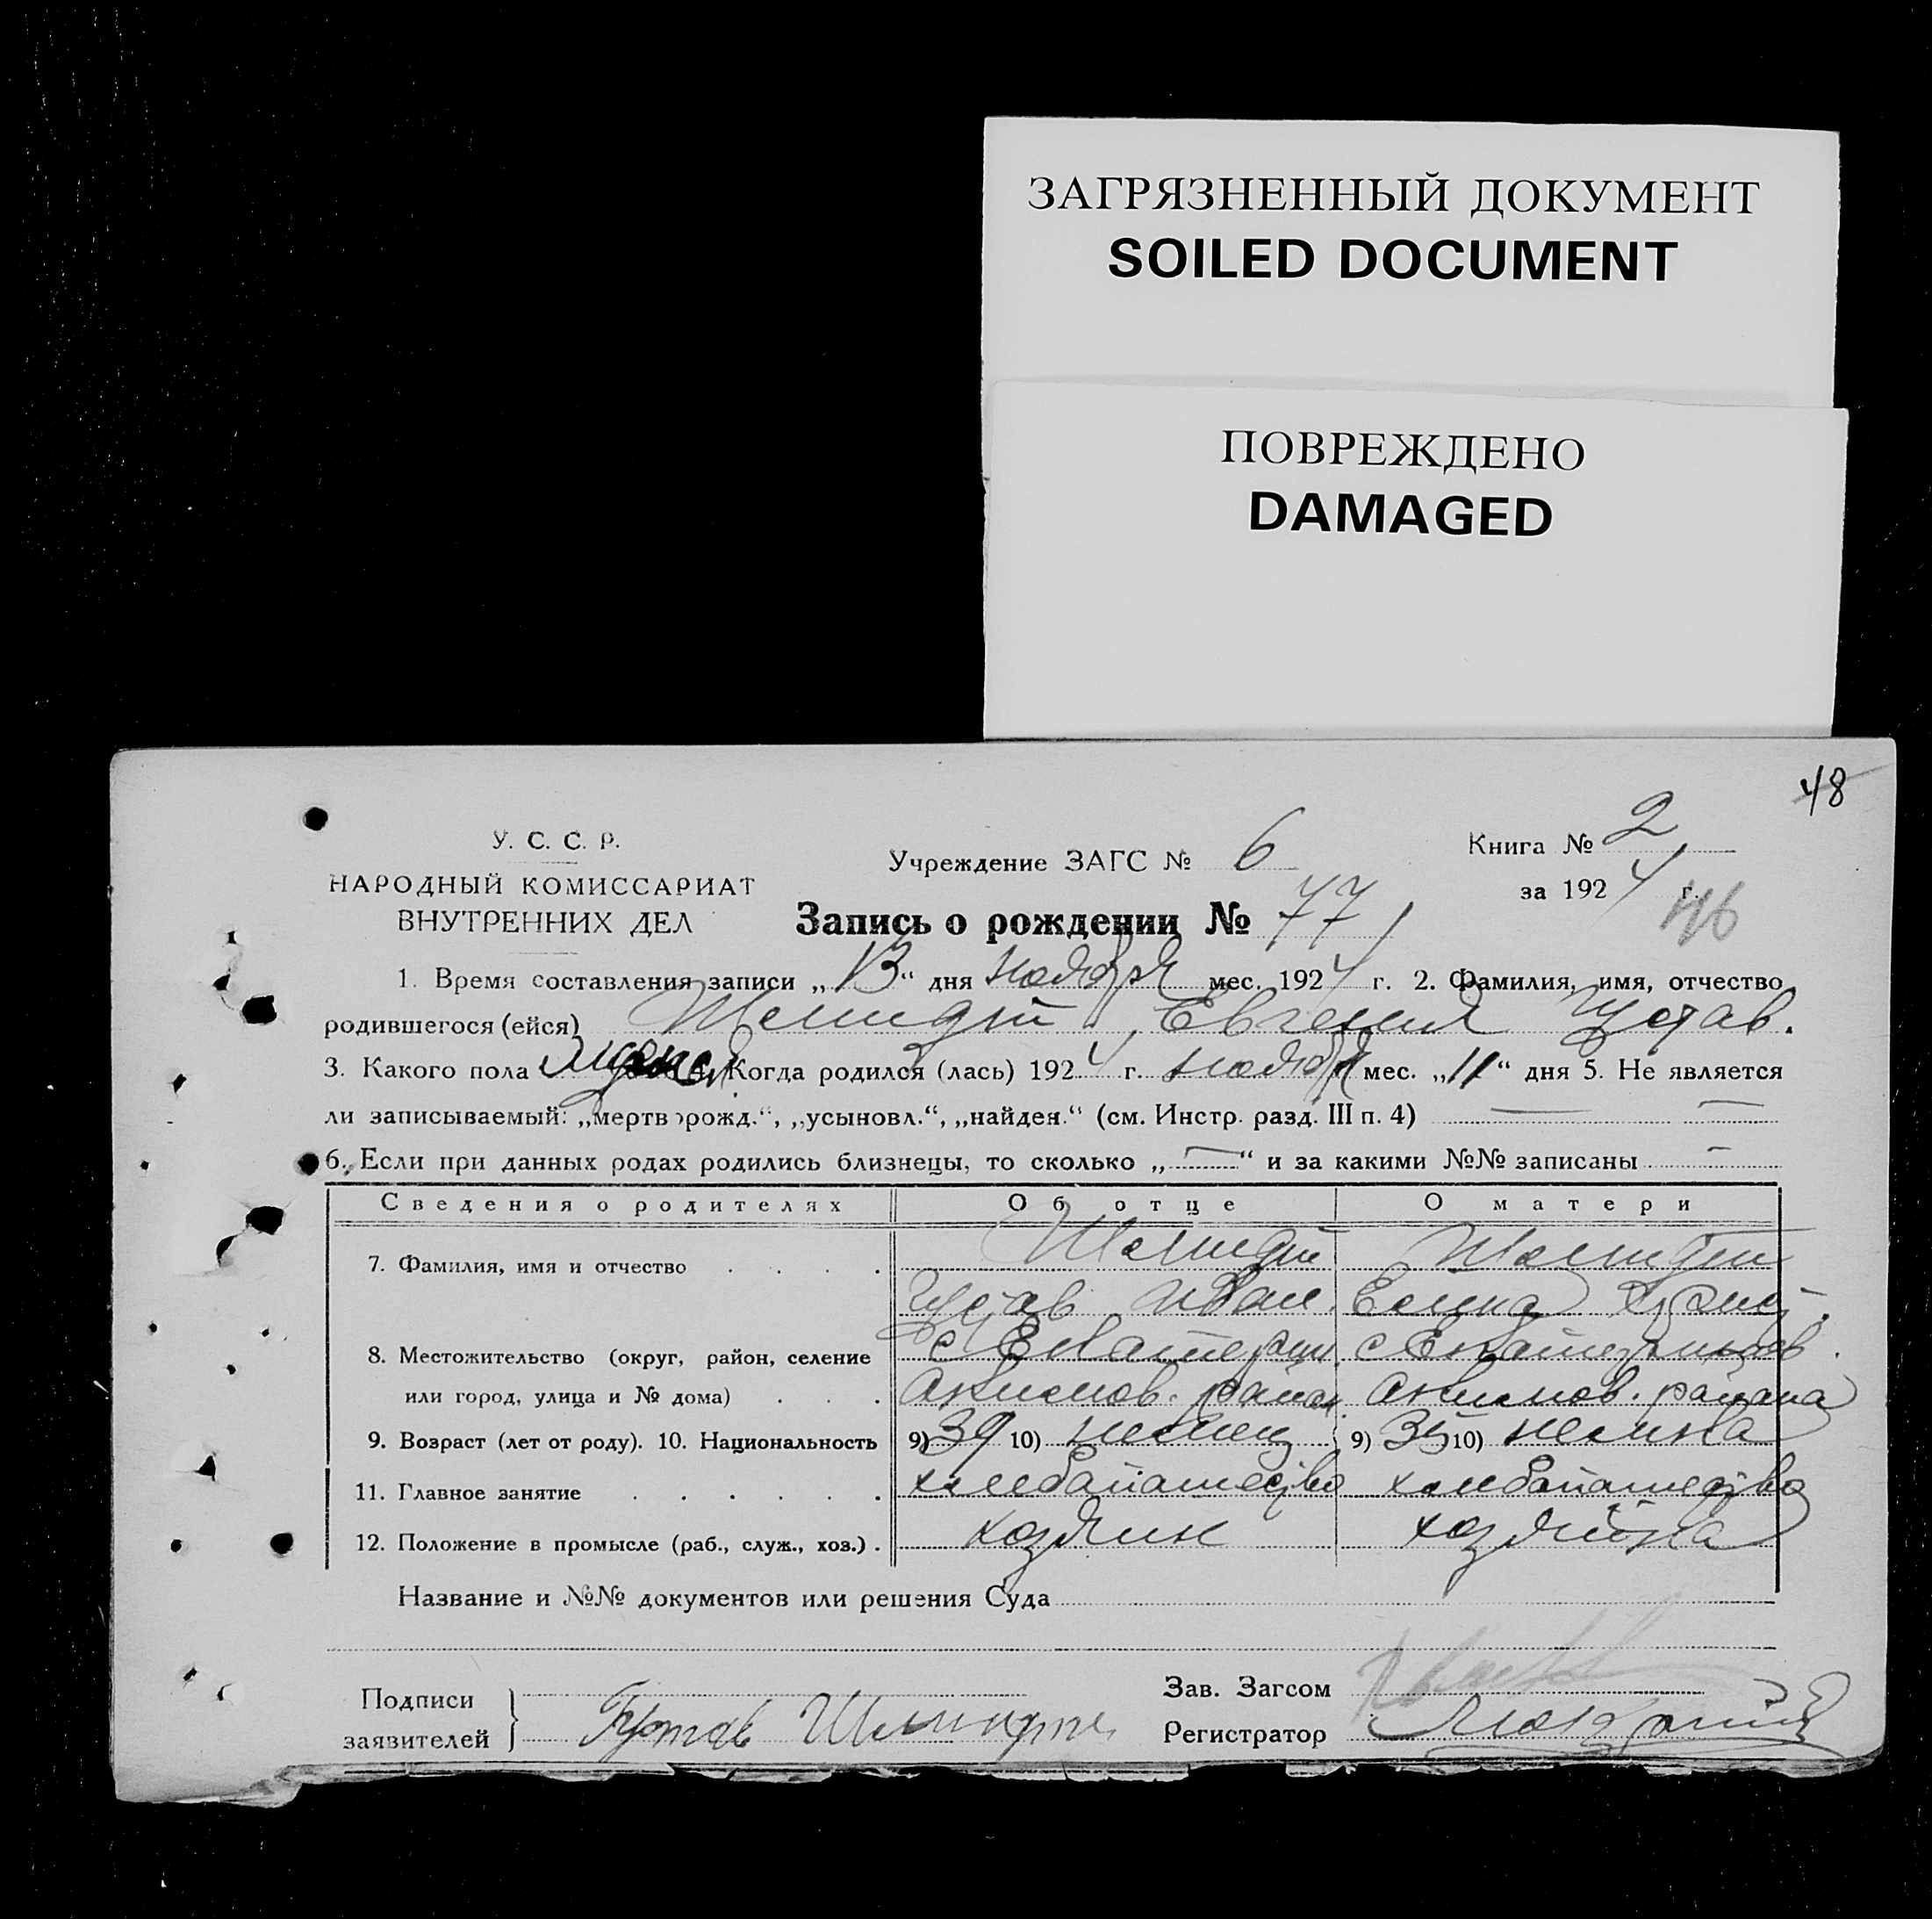 ЗАГРЯЗНЕННЫЙ ДОКУМЕНТ
SOILED DOCUMENT
ПОВРЕЖДЕНО
DAMAGED
48
У. С. С. Р.
НАРОДНЫЙ КОМИССАРИАТ
ВНУТРЕННИХ ДЕЛ
Учреждение ЗАГС № 6
Книга № 2
за 1924 г.
Запись о рождении № 77
1. Время составления записи „13“ дня ноября мес. 1924 г. 2. Фамилия, имя, отчество
родившегося (ейся) Шмидт, Евгений Густав.
3. Какого пола 4. Когда родился (лась) 1924 г. ноября мес. „11“ дня 5. Не является
ли записываемый: „мертворожд.“, „усыновл.“, „найден.“ (см. Инстр. разд. III п. 4) — —
6. Если при данных родах родились близнецы, то сколько „—“ и за какими №№ записаны —
Сведения о родителях Об отце О матери
7. Фамилия, имя и отчество . . . .
8. Местожительство (округ, район, селение
или город, улица и № дома) . . .
9. Возраст (лет от роду). 10. Национальность
11. Главное занятие . . . . . .
12. Положение в промысле (раб., служ., хоз.) .
Шмидт
Густав Иван.
с Екатерин
район
9) 39 10) немец
хлебопашество
хозяин
Шмидт
с Екатеринов.
района
9) 35 10) немка
хлебопашество
хозяйка
Название и №№ документов или решения Суда
Подписи
заявителей } Густав Шмидт
Зав. Загсом
Регистратор